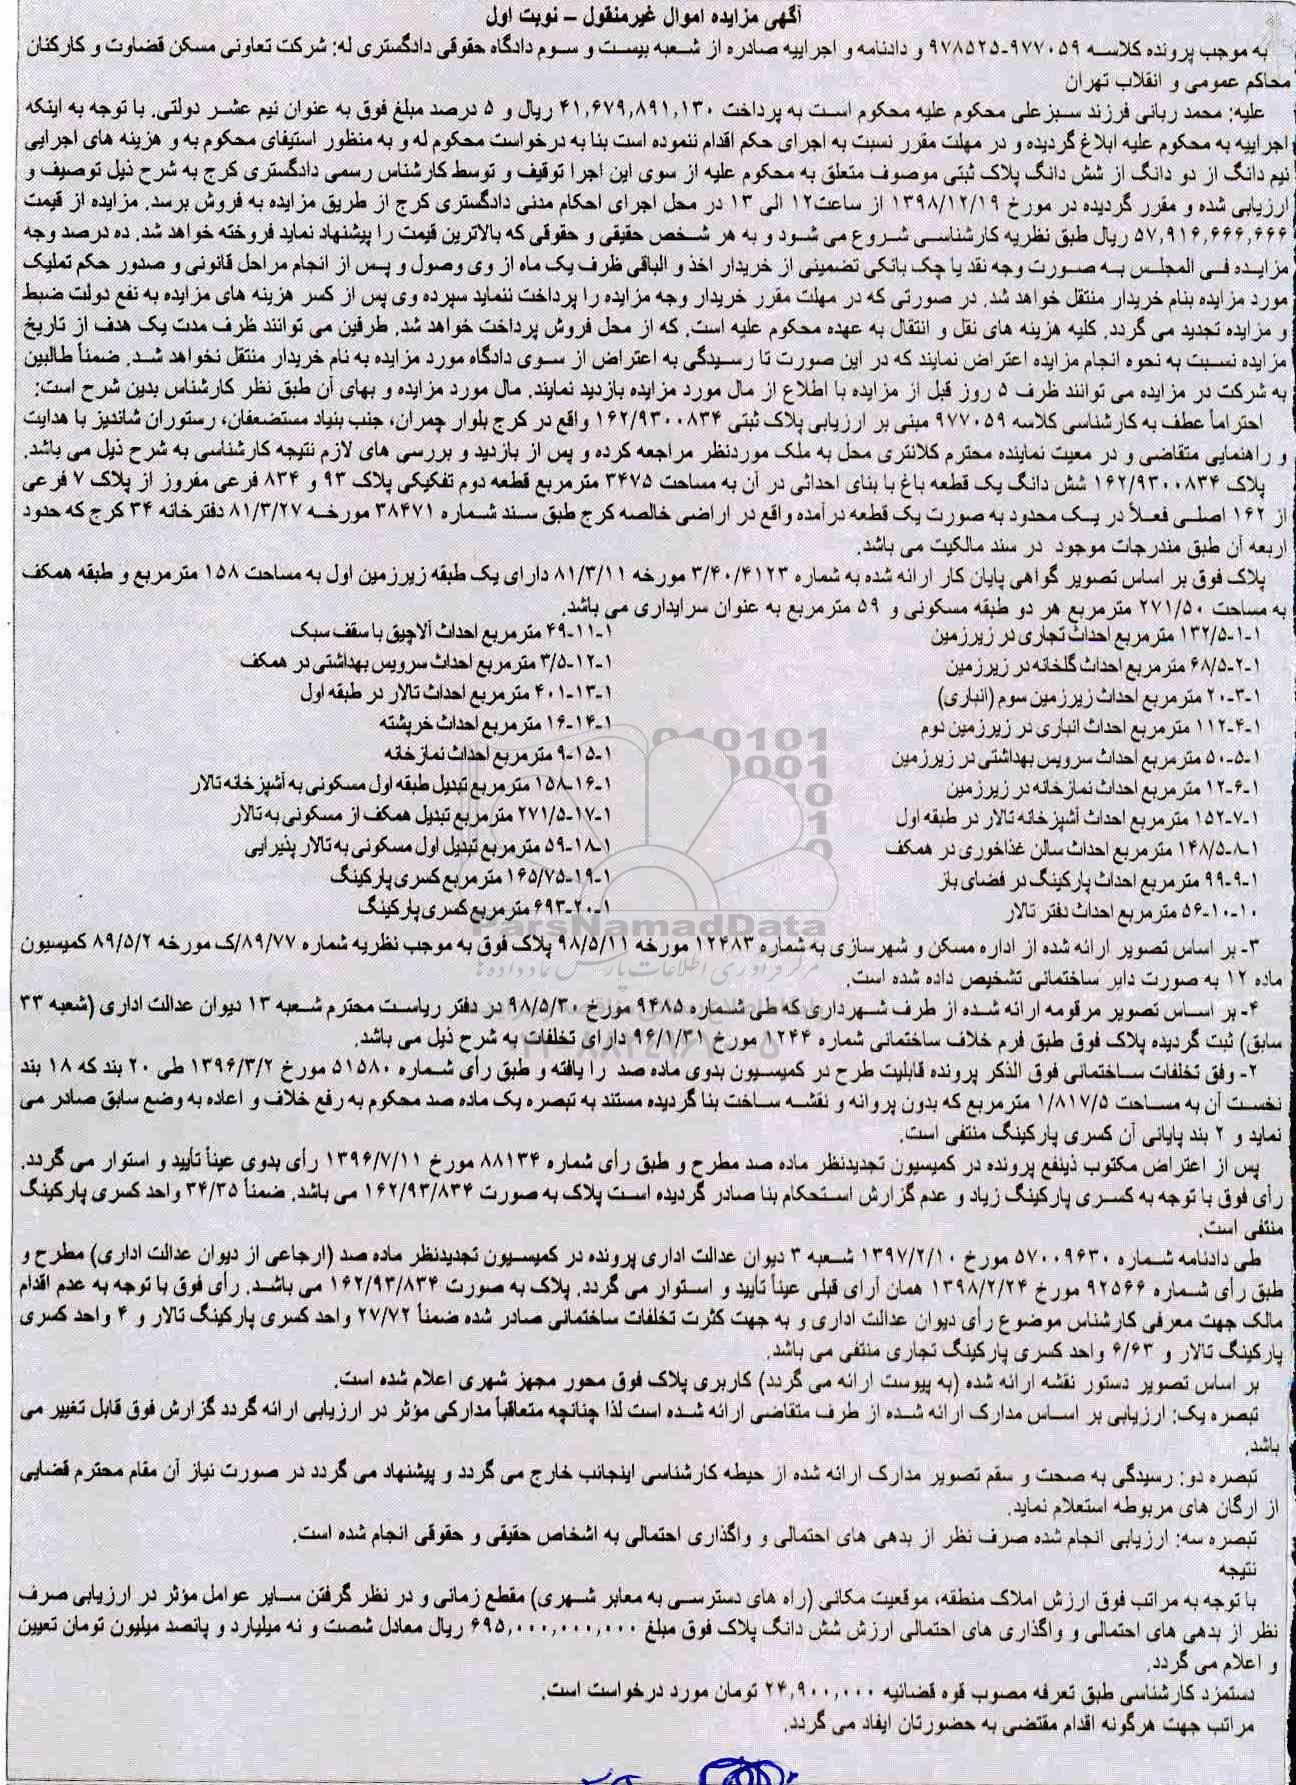 آگهی مزایده اموال غیرمنقول – نوبت اول
به موجب پرونده کلاسه ۹۷۷۰۵۹-۹۷۸۵۲۵ و دادنامه و اجراییه صادره از شعبه بیست و سوم دادگاه حقوقی دادگستری له: شرکت تعاونی مسکن قضاوت و کارکنان
محاکم عمومی و انقلاب تهران
علیه: محمد ربانی فرزند سبزعلی محکوم علیه محکوم است به پرداخت ۴۱,۶۷۹,۸۹۱,۱۳۰ ریال و ۵ درصد مبلغ فوق به عنوان نیم عشر دولتی. با توجه به اینکه
اجراییه به محکوم علیه ابلاغ گردیده و در مهلت مقرر نسبت به اجرای حکم اقدام ننموده است بنا به درخواست محکوم له و به منظور استیفای محکوم به و هزینه های اجرایی
نیم دانگ از دو دانگ از شش دانگ پلاک ثبتی موصوف متعلق به محکوم علیه از سوی این اجرا توقیف و توسط کارشناس رسمی دادگستری کرج به شرح ذیل توصیف و
ارزیابی شده و مقرر گردیده در مورخ ۱۳۹۸/۱۲/۱۹ از ساعت۱۲ الی ۱۳ در محل اجرای احکام مدنی دادگستری کرج از طریق مزایده به فروش برسد. مزایده از قیمت
۵۷,۹۱۶,۶۶۶,۶۶۶ ریال طبق نظریه کارشناسی شروع می شود و به هر شخص حقیقی و حقوقی که بالاترین قیمت را پیشنهاد نماید فروخته خواهد شد. ده درصد وجه
مزایده فی المجلس به صورت وجه نقد یا چک بانکی تضمینی از خریدار اخذ و الباقی ظرف یک ماه از وی وصول و پس از انجام مراحل قانونی و صدور حکم تملیک
مورد مزایده بنام خریدار منتقل خواهد شد. در صورتی که در مهلت مقرر خریدار وجه مزایده را پرداخت ننماید سپرده وی پس از کسر هزینه های مزایده به نفع دولت ضبط
و مزایده تجدید می گردد. کلیه هزینه های نقل و انتقال به عهده محکوم علیه است. که از محل فروش پرداخت خواهد شد. طرفین می توانند ظرف مدت یک هدف از تاریخ
مزایده نسبت به نحوه انجام مزایده اعتراض نمایند که در این صورت تا رسیدگی به اعتراض از سوی دادگاه مورد مزایده به نام خریدار منتقل نخواهد شد. ضمناً طالبین
به شرکت در مزایده می توانند ظرف ۵ روز قبل از مزایده با اطلاع از مال مورد مزایده بازدید نمایند. مال مورد مزایده و بهای آن طبق نظر کارشناس بدین شرح است:
احتراماً عطف به کارشناسی کلاسه ۹۷۷۰۵۹ مبنی بر ارزیابی پلاک ثبتی ۱۶۲/۹۳۰۰۸۳۴ واقع در کرج بلوار چمران، جنب بنیاد مستضعفان، رستوران شاندیز با هدایت
و راهنمایی متقاضی و در معیت نماینده محترم کلانتری محل به ملک موردنظر مراجعه کرده و پس از بازدید و بررسی های لازم نتیجه کارشناسی به شرح ذیل می باشد.
پلاک ۱۶۲/۹۳۰۰۸۳۴ شش دانگ یک قطعه باغ با بنای احداثی در آن به مساحت ۳۴۷۵ مترمربع قطعه دوم تفکیکی پلاک ۹۳ و ۸۳۴ فرعی مفروز از پلاک ۷ فرعی
از ۱۶۲ اصلی فعلاً در یک محدود به صورت یک قطعه درآمده واقع در اراضی خالصه کرج طبق سند شماره ۳۸۴۷۱ مورخه ۸۱/۳/۲۷ دفترخانه ۳۴ کرج که حدود
اربعه آن طبق مندرجات موجود در سند مالکیت می باشد.
پلاک فوق بر اساس تصویر گواهی پایان کار ارائه شده به شماره ۳/۴۰/۴۱۲۳ مورخه ۸۱/۳/۱۱ دارای یک طبقه زیرزمین اول به مساحت ۱۵۸ مترمربع و طبقه همکف
به مساحت ۲۷۱/۵۰ مترمربع هر دو طبقه مسکونی و ۵۹ مترمربع به عنوان سرایداری می باشد.
۱-۱-۱۳۲/۵ مترمربع احداث تجاری در زیرزمین
۱-۲-۶۸/۵ مترمربع احداث گلخانه در زیرزمین
۱-۳-۲۰ مترمربع احداث زیرزمین سوم (انباری)
۱-۴-۱۱۲ مترمربع احداث انباری در زیرزمین دوم
۱-۵-۵۰ مترمربع احداث سرویس بهداشتی در زیرزمین
۱-۶-۱۲ مترمربع احداث نمازخانه در زیرزمین
۱-۷-۱۵۲ مترمربع احداث آشپزخانه تالار در طبقه اول
۱-۸-۱۴۸/۵ مترمربع احداث سالن غذاخوری در همکف
۱-۹-۹۹ مترمربع احداث پارکینگ در فضای باز
۱۰-۱۰-۵۶ مترمربع احداث دفتر تالار
۱-۱۱-۴۹ مترمربع احداث آلاچیق با سقف سبک
۱-۱۲-۳/۵ مترمربع احداث سرویس بهداشتی در همکف
۱-۱۳-۴۰۱ مترمربع احداث تالار در طبقه اول
۱-۱۴-۱۶ مترمربع احداث خرپشته
۱-۱۵-۹ مترمربع احداث نمازخانه
۱-۱۶-۱۵۸ مترمربع تبدیل طبقه اول مسکونی به آشپزخانه تالار
۱-۱۷-۲۷۱/۵ مترمربع تبدیل همکف از مسکونی به تالار
۱-۱۸-۵۹ مترمربع تبدیل اول مسکونی به تالار پذیرایی
۱-۱۹-۱۶۵/۷۵ مترمربع کسری پارکینگ
۱-۲۰-۶۹۳ مترمربع کسری پارکینگ
ParsNamadData
مرکز فرآوری اطلاعات پارس نماد داده ها
۳- بر اساس تصویر ارائه شده از اداره مسکن و شهرسازی به شماره ۱۲۴۸۳ مورخه ۹۸/۵/۱۱ پلاک فوق به موجب نظریه شماره ۸۹/۷۷/ک مورخه ۸۹/۵/۲ کمیسیون
ماده ۱۲ به صورت دایر ساختمانی تشخیص داده شده است.
۴- بر اساس تصویر مرقومه ارائه شده از طرف شهرداری که طی شماره ۹۴۸۵ مورخ ۹۸/۵/۳۰ در دفتر ریاست محترم شعبه ۱۳ دیوان عدالت اداری (شعبه ۳۳
سابق) ثبت گردیده پلاک فوق طبق فرم خلاف ساختمانی شماره ۱۲۴۴ مورخ ۹۶/۱/۳۱ دارای تخلفات به شرح ذیل می باشد.
۲- وفق تخلفات ساختمانی فوق الذکر پرونده قابلیت طرح در کمیسیون بدوی ماده صد را یافته و طبق رأی شماره ۵۱۵۸۰ مورخ ۱۳۹۶/۳/۲ طی ۲۰ بند که ۱۸ بند
نخست آن به مساحت ۱/۸۱۷/۵ مترمربع که بدون پروانه و نقشه ساخت بنا گردیده مستند به تبصره یک ماده صد محکوم به رفع خلاف و اعاده به وضع سابق صادر می
نماید و ۲ بند پایانی آن کسری پارکینگ منتفی است.
پس از اعتراض مکتوب ذینفع پرونده در کمیسیون تجدیدنظر ماده صد مطرح و طبق رأی شماره ۸۸۱۳۴ مورخ ۱۳۹۶/۷/۱۱ رأی بدوی عیناً تأیید و استوار می گردد.
رأی فوق با توجه به کسری پارکینگ زیاد و عدم گزارش استحکام بنا صادر گردیده است پلاک به صورت ۱۶۲/۹۳/۸۳۴ می باشد. ضمناً ۳۴/۳۵ واحد کسری پارکینگ
منتفی است.
طی دادنامه شماره ۵۷۰۰۹۶۳۰ مورخ ۱۳۹۷/۲/۱۰ شعبه ۳ دیوان عدالت اداری پرونده در کمیسیون تجدیدنظر ماده صد (ارجاعی از دیوان عدالت اداری) مطرح و
طبق رأی شماره ۹۲۵۶۶ مورخ ۱۳۹۸/۲/۲۴ همان آرای قبلی عیناً تأیید و استوار می گردد. پلاک به صورت ۱۶۲/۹۳/۸۳۴ می باشد. رأی فوق با توجه به عدم اقدام
مالک جهت معرفی کارشناس موضوع رأی دیوان عدالت اداری و به جهت کثرت تخلفات ساختمانی صادر شده ضمناً ۲۷/۷۲ واحد کسری پارکینگ تالار و ۴ واحد کسری
پارکینگ تالار و ۶/۶۳ واحد کسری پارکینگ تجاری منتفی می باشد.
بر اساس تصویر دستور نقشه ارائه شده (به پیوست ارائه می گردد) کاربری پلاک فوق محور مجهز شهری اعلام شده است.
تبصره یک: ارزیابی بر اساس مدارک ارائه شده از طرف متقاضی ارائه شده است لذا چنانچه متعاقباً مدارکی مؤثر در ارزیابی ارائه گردد گزارش فوق قابل تغییر می
باشد.
تبصره دو: رسیدگی به صحت و سقم تصویر مدارک ارائه شده از حیطه کارشناسی اینجانب خارج می گردد و پیشنهاد می گردد در صورت نیاز آن مقام محترم قضایی
از ارگان های مربوطه استعلام نماید.
تبصره سه: ارزیابی انجام شده صرف نظر از بدهی های احتمالی و واگذاری احتمالی به اشخاص حقیقی و حقوقی انجام شده است.
نتیجه
با توجه به مراتب فوق ارزش املاک منطقه، موقعیت مکانی (راه های دسترسی به معابر شهری) مقطع زمانی و در نظر گرفتن سایر عوامل مؤثر در ارزیابی صرف
نظر از بدهی های احتمالی و واگذاری های احتمالی ارزش شش دانگ پلاک فوق مبلغ ۶۹۵,۰۰۰,۰۰۰,۰۰۰ ریال معادل شصت و نه میلیارد و پانصد میلیون تومان تعیین
و اعلام می گردد.
دستمزد کارشناسی طبق تعرفه مصوب قوه قضائیه ۲۴,۹۰۰,۰۰۰ تومان مورد درخواست است.
مراتب جهت هرگونه اقدام مقتضی به حضورتان ایفاد می گردد.